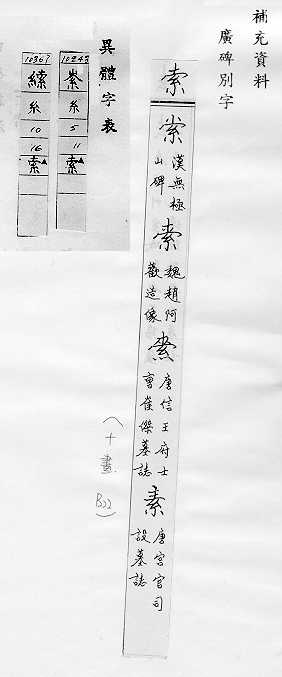 補充資料
廣碑別字
索
漢無極
山碑
魏趙阿
歡造像
唐信王府士
曹崔傑墓誌
素
唐宮官司
設墓誌
(十畫 B22)
異體字表
10243
糸
5
11
索▲
糸
10
16
索▲